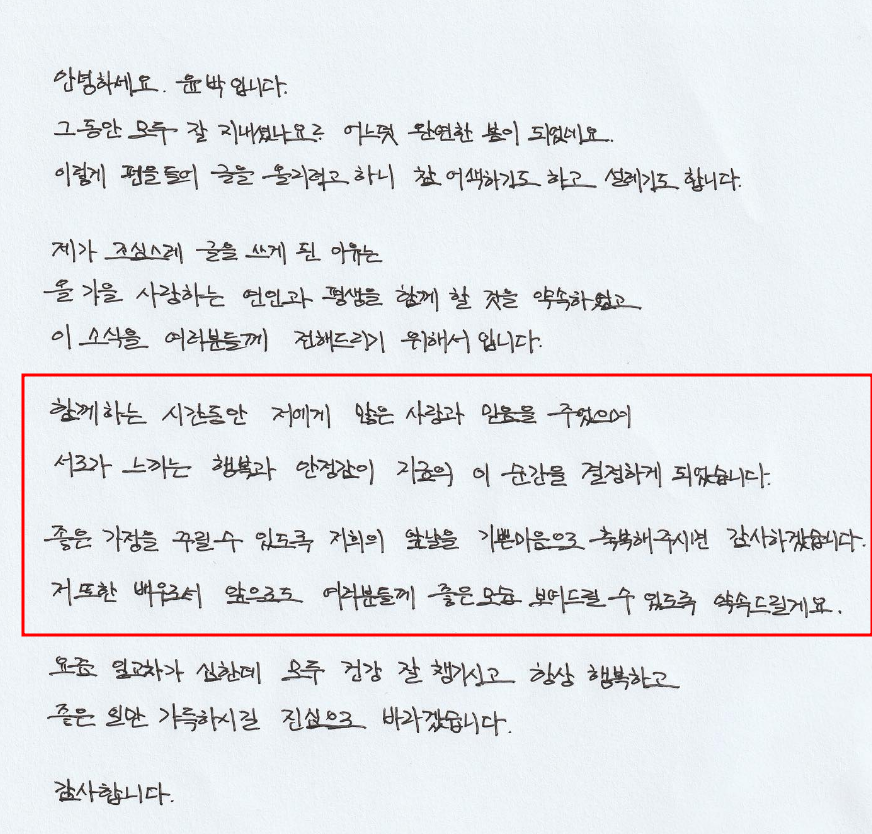 안녕하세요. 윤박입니다.
그동안 모두 잘 지내셨나요? 어느덧 완연한 봄이 되었네요.
이렇게 펜을 들어 글을 올리려고 하니 참 어색하기도 하고 설레기도 합니다.
제가 조심스레 글을 쓰게 된 이유는
올 가을 사랑하는 연인과 평생을 함께 할 것을 약속하였고
이 소식을 여러분들께 전해드리기 위해서 입니다.
함께하는 시간동안 저에게 많은 사랑과 믿음을 주었으며
서로가 느끼는 행복과 안정감이 지금의 이 순간을 결정하게 되었습니다.
좋은 가정을 꾸릴 수 있도록 저희의 앞날을 기쁜마음으로 축복해주시면 감사하겠습니다.
저 또한 배우로서 앞으로도 여러분들께 좋은모습 보여드릴 수 있도록 약속드릴게요.
요즘 일교차가 심한데 모두 건강 잘 챙기시고 항상 행복하고
좋은 일만 가득하시길 진심으로 바라겠습니다.
감사합니다.